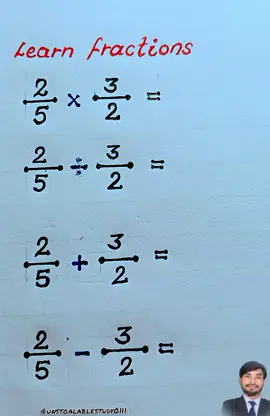 Learn fractions
2/5 × 3/2 =
2/5 ÷ 3/2 =
2/5 + 3/2 =
2/5 - 3/2 =
@UNSTOALABLESTUDY0111